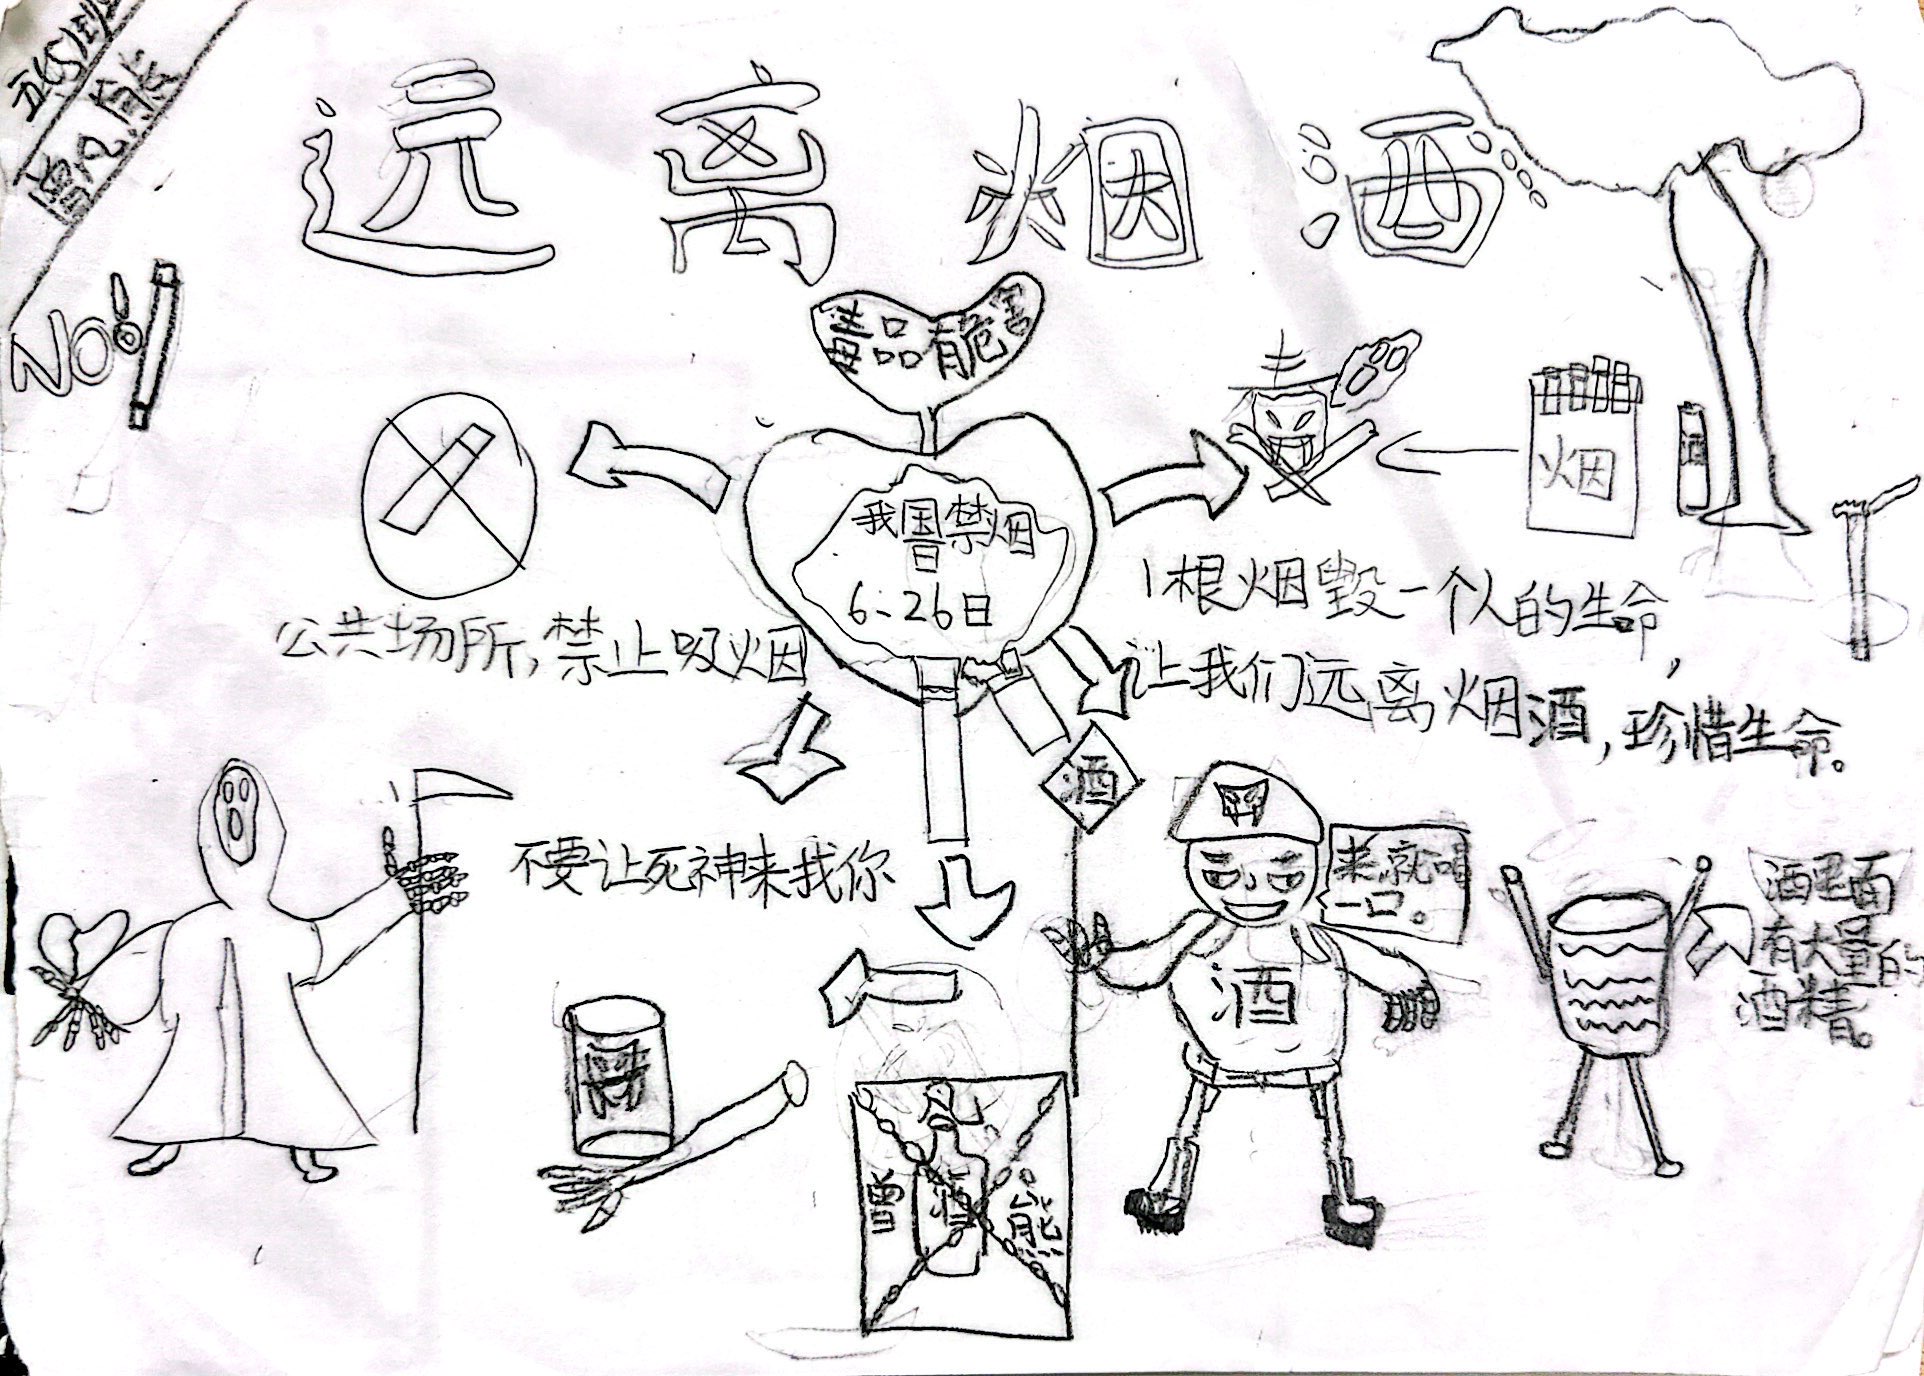 远离烟酒
NO!
毒品脆害
我国禁烟
日
6、26日
毒
烟
酒
公共场所,禁止吸烟
1根烟毁一个人的生命,
让我们远离烟酒,珍惜生命。
不要让死神来找你
酒
来就喝
一口。
酒
酒里面
有大量的
酒精。
酒